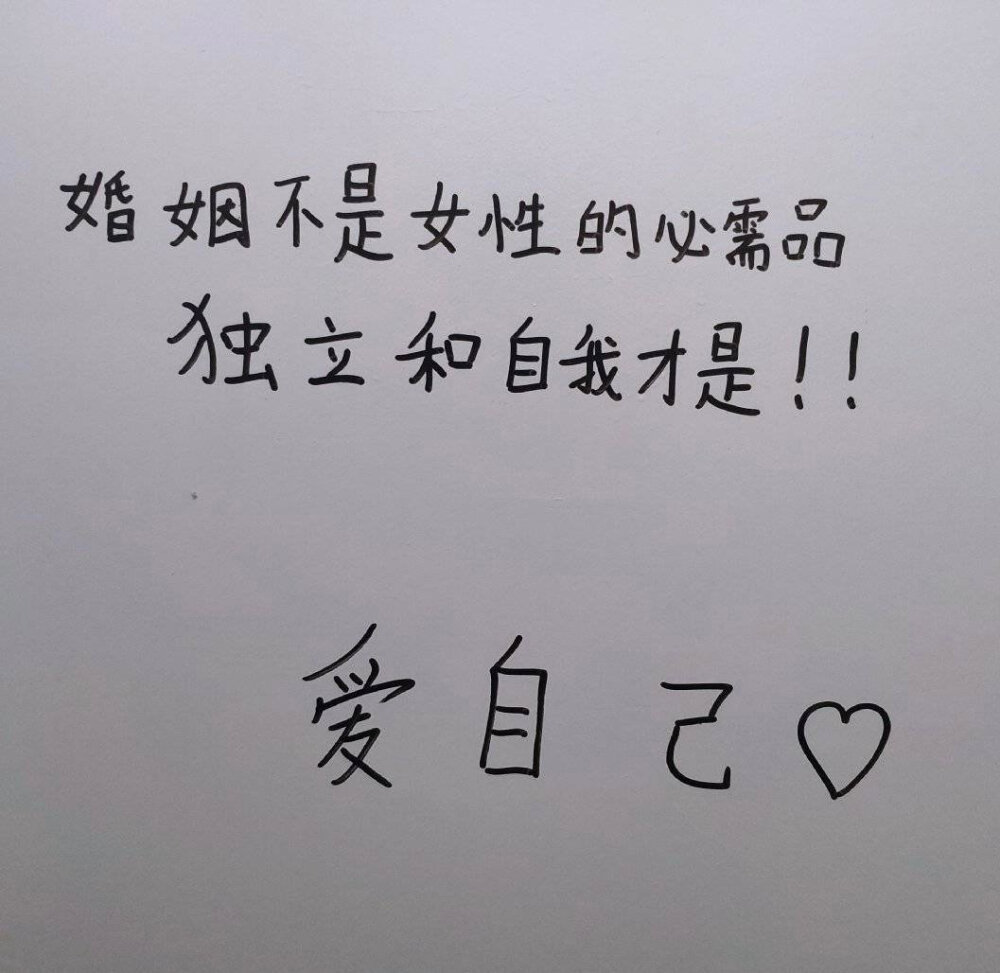 婚姻不是女性的必需品
独立和自我才是！！
爱自己♡